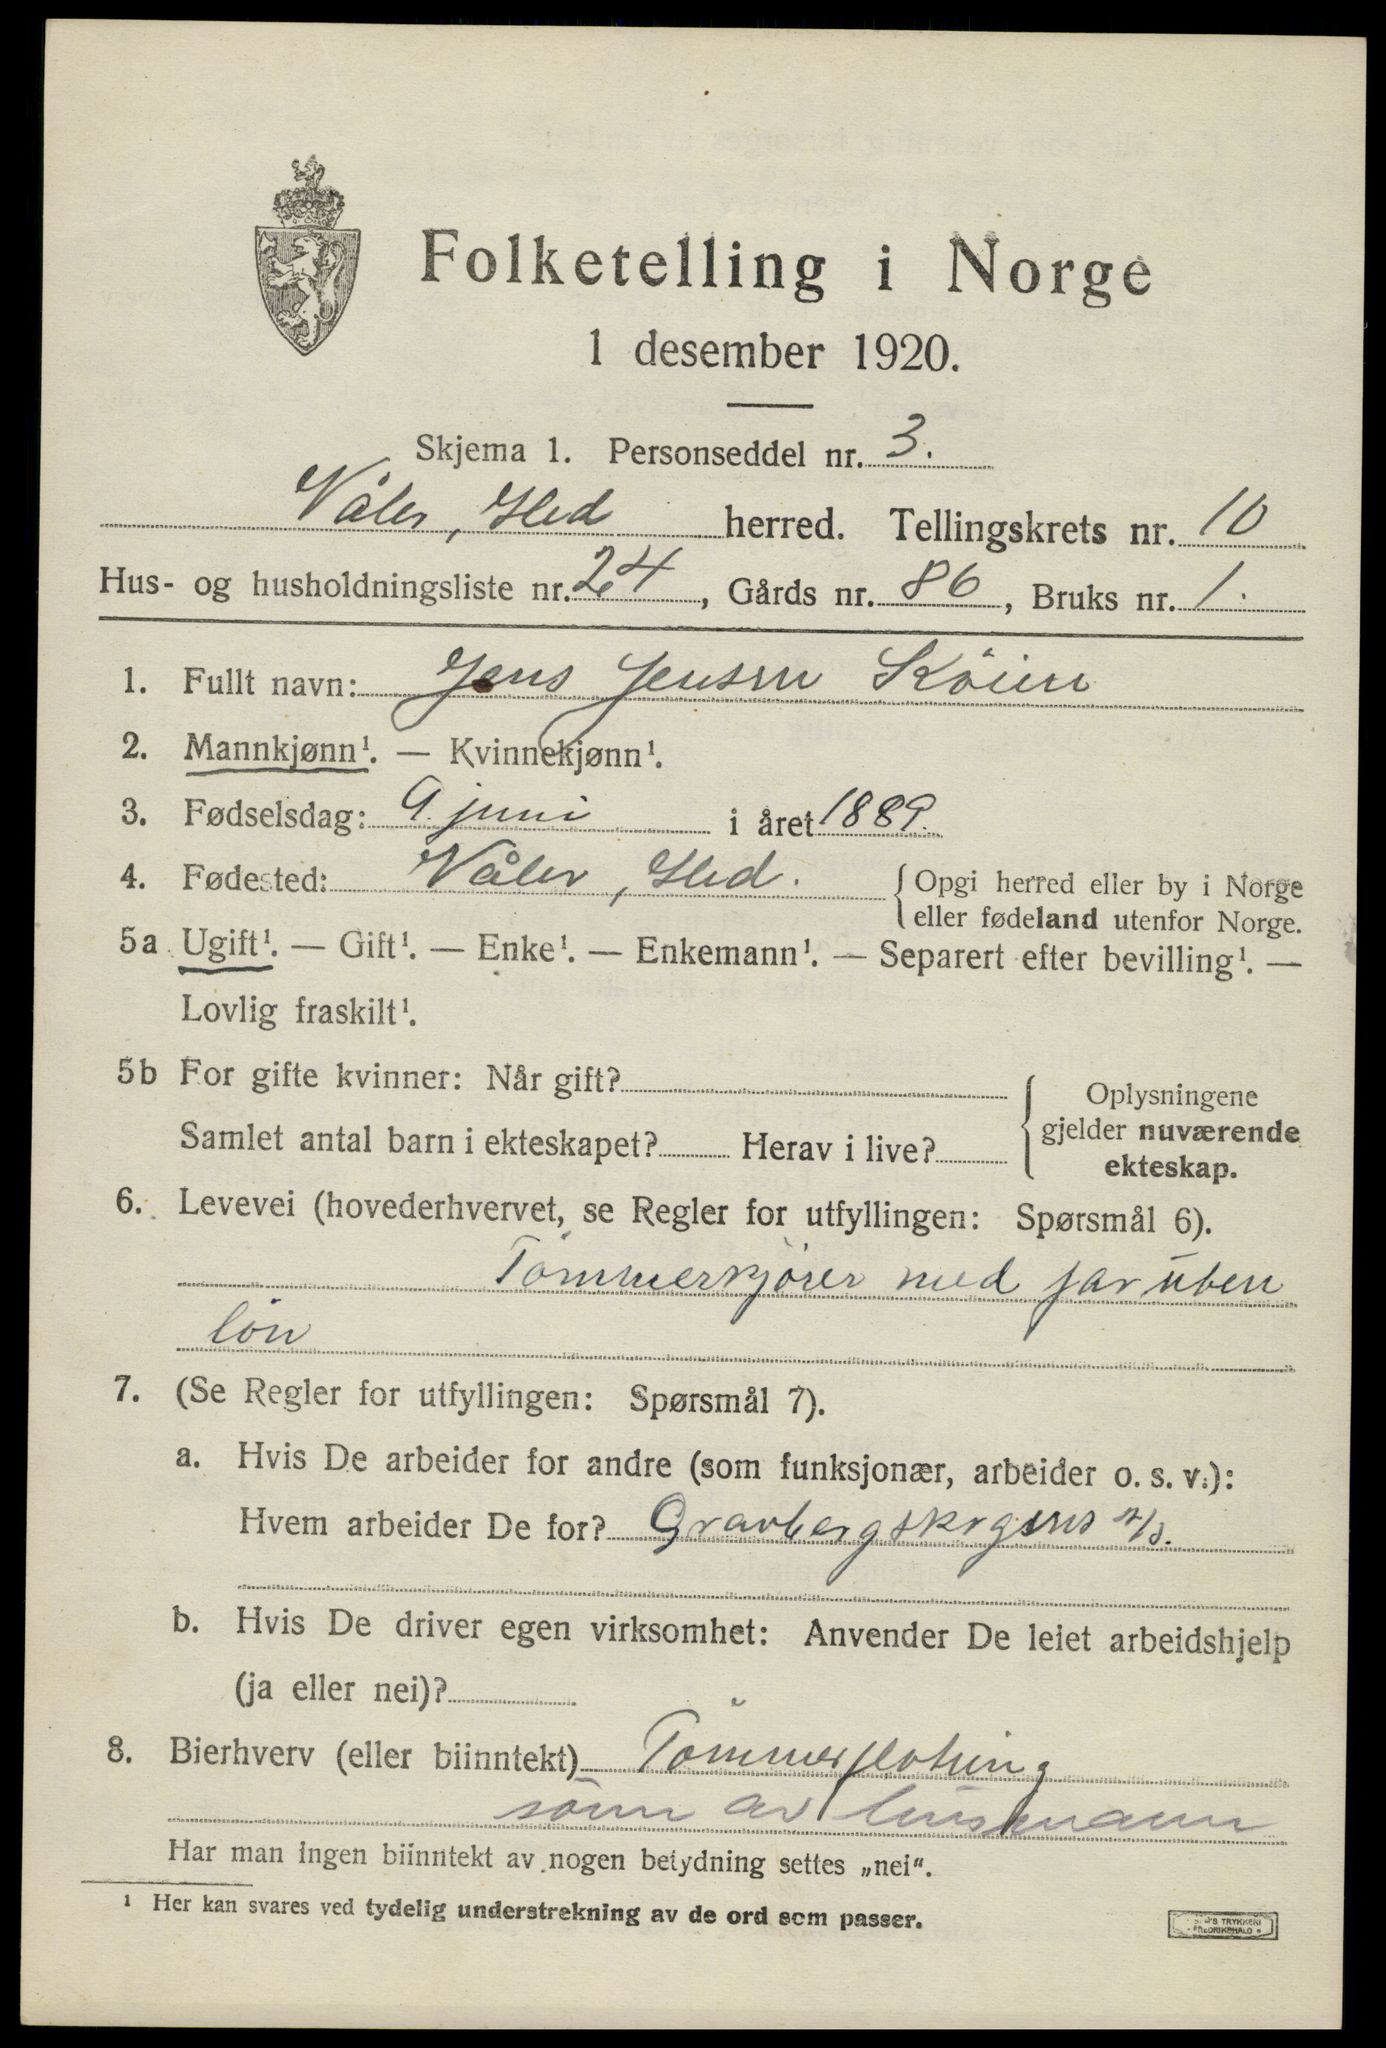 Folketelling i Norge
1 desember 1920.
Skjema 1. Personseddel nr. 3.
Våler, Hed herred. Tellingskrets nr. 10
Hus- og husholdningsliste nr. 24, Gårds nr. 86, Bruks nr. 1.
1. Fullt navn: Jens Jensen Köien
2. Mannkjønn¹. — Kvinnekjønn¹.
3. Fødselsdag: 9 juni i året 1889.
4. Fødested: Våler, Hed. Opgi herred eller by i Norge
eller fødeland utenfor Norge.
5a Ugift¹. — Gift¹. — Enke¹. — Enkemann¹. — Separert efter bevilling¹. —
Lovlig fraskilt¹.
5b For gifte kvinner: Når gift?
Samlet antal barn i ekteskapet? Herav i live?
Oplysningene
gjelder nuværende
ekteskap.
6. Levevei (hovederhvervet, se Regler for utfyllingen: Spørsmål 6).
Tömmerkjörer med far uten
lön
7. (Se Regler for utfyllingen: Spørsmål 7).
a. Hvis De arbeider for andre (som funksjonær, arbeider o. s. v.):
Hvem arbeider De for? Gravbergskogens A/S.
b. Hvis De driver egen virksomhet: Anvender De leiet arbeidshjelp
(ja eller nei)?
8. Bierhverv (eller biinntekt) Tömmerflötning
sönn av husmann
Har man ingen biinntekt av nogen betydning settes „nei“.
¹ Her kan svares ved tydelig understrekning av de ord som passer.
TRYKKERI
FREDRIKSHALD